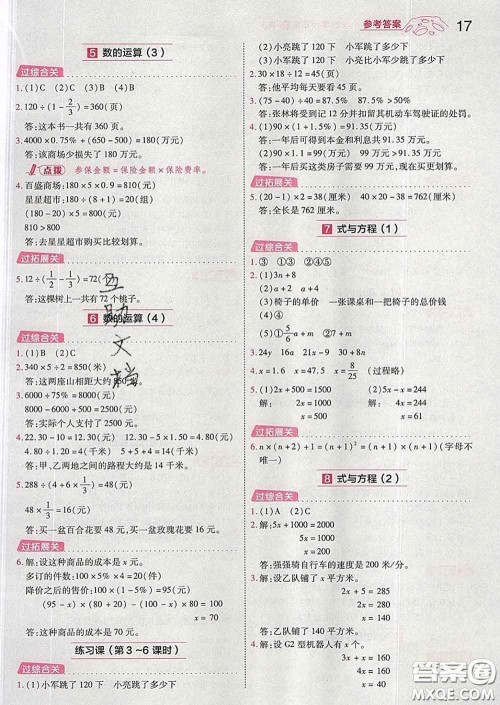 参考答案 17
5 数的运算(3)
过综合关
1.(1)C (2)C (3)B (4)B
2.120÷(1-2/3)=360(页)
答:这本书一共有 360 页。
3.4000×0.75%÷(650-500)=180(万元)
答:该商场少损失了 180 万元。
点拨 参保金额=保险金额×保险费率。
4.百盛商场:180×5×0.9=810(元)
星星超市:180÷(8+1)=20(组)
180×(5-1)+20=740(元)
答:去星星超市购买比较划算。
过拓展关
5.12÷(1/2-1/3)=72(个)
答:这棵树上一共有 72 个桃子。
6 数的运算(4)
过综合关
1.(1)B (2)C
2.340×5÷2=850(米)
答:这两座山相距大约 850 米。
3.6000÷75%=8000(元)
8000-6000+500=2500(元)
答:实际个人支付了 2500 元。
4.22.30-10=12.30 12.30÷1.50+4=12.2(千米)
答:甲、乙两地之间的路程大约为 千米。
5.288÷(4+6×1/3)=48(元)
48×1/3=16(元)
答:买一盆百合花要 48 元,买一盆玫瑰花要 16 元。
过拓展关
6.解:设这种商品的成本是 x 元。
多订的件数:100×5%×4=20(件)
降价之后的售价:100×(1-5%)=95(元)
(95-x)×(80+20)=(100-x)×80
x=70
答:这种商品的成本是 70 元。
练习课(第 3~6 课时)
过综合关
1.(1)小军跳了 120 下 小亮跳了多少下
(2)小亮跳了 120 下 小军跳了多少下
(3)小军跳了 120 下 小亮比小军少跳了多少下
2.30×18÷12=45(页)
答:他平均每天要看 45 页。
3.(75-40)÷40=87.5%
答:张林将受到记 12 分并扣留其机动车驾驶证的处罚。
4.(1)90×(1+1.5%)=91.35(万元)
答:一年后可得到本金和利息共 91.35 万元。
(2)90×1.1=99(万元) 99万元>91.35万元
答:一年后再买这类房子需要 99 万元,现在购买比较好。
过拓展关
5.(20-1)×2=38(厘米) 20×40-38=762(厘米)
答:全长是 762 厘米。
7 式与方程(1)
过综合关
1.③ ①③④⑤ ①④⑤
2.(1)3n+8
(2)4x
(3)椅子的单价 一张课桌和一把椅子的总价钱
(4)2n
(5)①5/6a+m ②2a-m
3.24y 16a 21x 8x a²
4.x=1.6 x=4.8 x=8/25 (过程略)
5.(1)2x+500=1500 (2)5x-6=244
解: 2x=1000 解: 5x=250
x=500 x=50
过拓展关
6.n×(n+2)+1=(n+1)×(n+1)(字母不唯一)
8 式与方程(2)
过综合关
1.(1)C (2)B (3)C
2.解: 5x+1000=2000
5x=1000
x=200
答:强强骑自行车的速度是 200 米/分。
3.解:设乙队铺了 x 平方米。
2x+5=285
2x=280
x=140
答:乙队铺了 140 平方米。
4.解:设 G2 型机器人有 x 个。
3x+x=160
4x=160
x=40
互助文档
答案圈
MXQE.COM